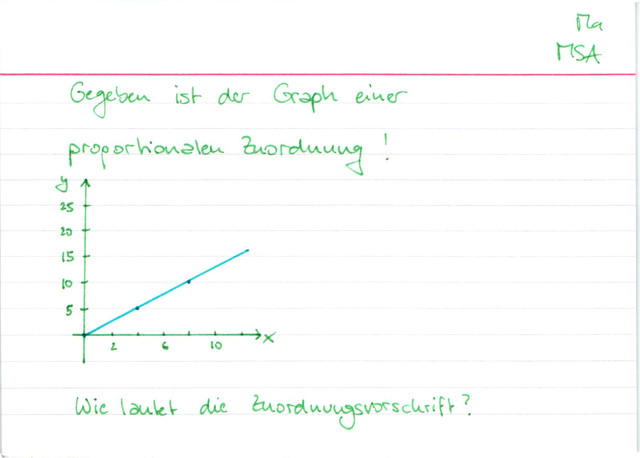 Ma
MSA
Gegeben ist der Graph einer
proportionalen Zuordnung!
y
25
20
15
10
5
2 6 10 x
Wie lautet die Zuordnungsvorschrift?